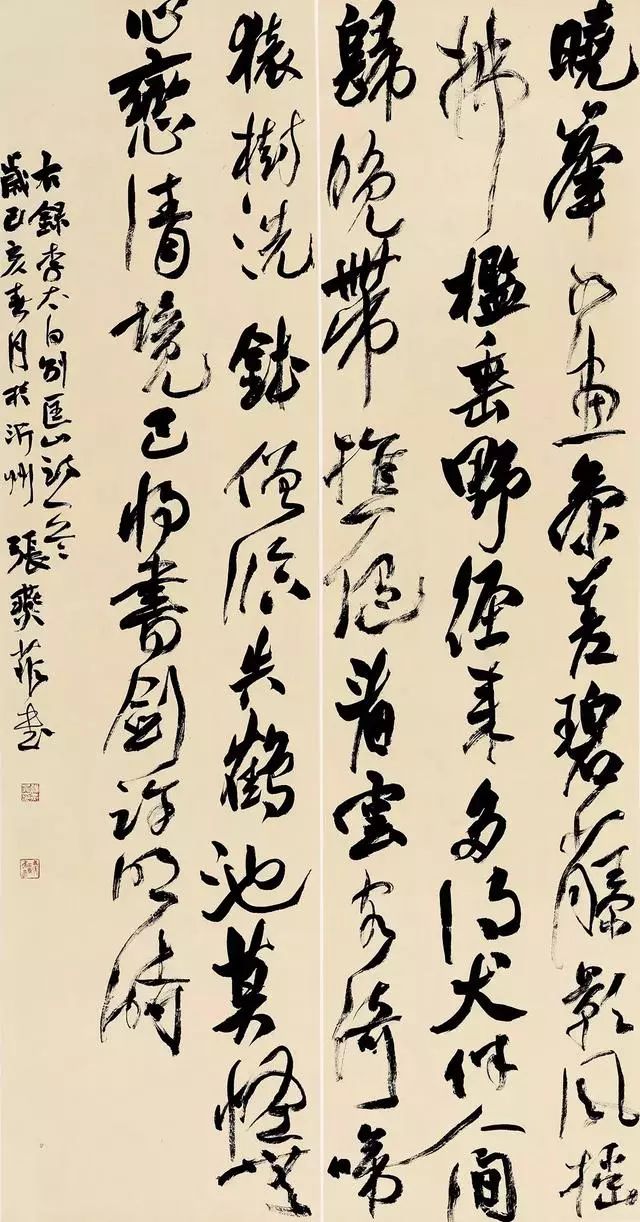 曉峯如畫參差碧藤影風搖
拂檻垂野徑來多將犬伴人間
歸晚帶樵隨看雲客倚啼
猿樹洗鉢僧臨失鶴池莫怪無
心戀清境已將書劍許明時
右錄李太白別匡山詩一首
歲己亥春月於沂州 張燕菲書